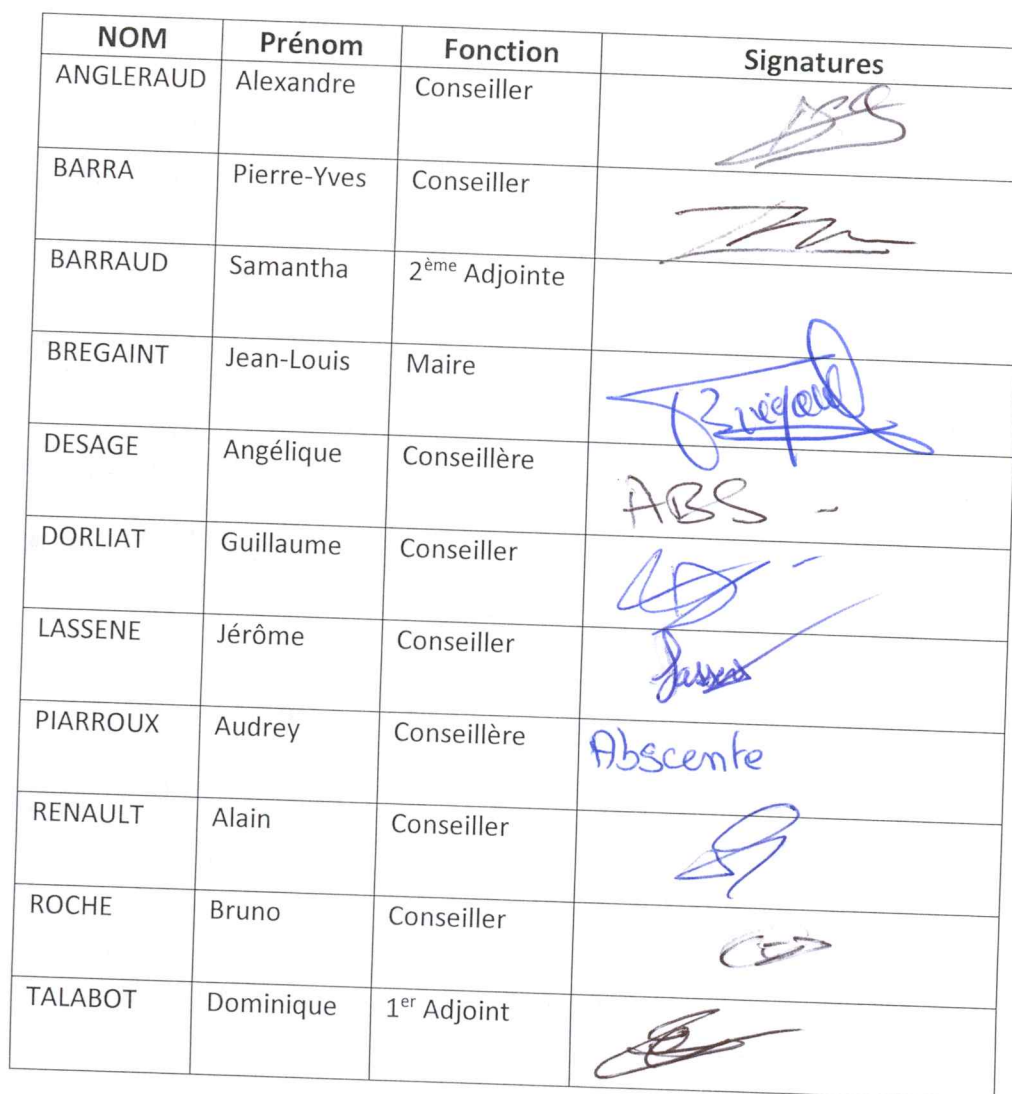 NOM Prénom Fonction Signatures
ANGLERAUD Alexandre Conseiller
BARRA Pierre-Yves Conseiller
BARRAUD Samantha 2ème Adjointe
BREGAINT Jean-Louis Maire
DESAGE Angélique Conseillère ABS -
DORLIAT Guillaume Conseiller
LASSENE Jérôme Conseiller
PIARROUX Audrey Conseillère Abscente
RENAULT Alain Conseiller
ROCHE Bruno Conseiller
TALABOT Dominique 1er Adjoint